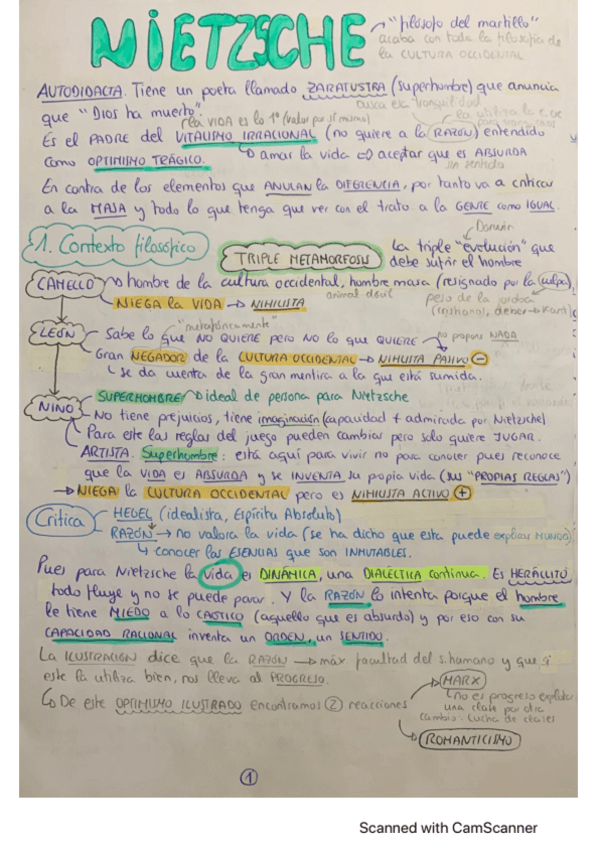 NIETZSCHE
"filósofo del martillo"
acaba con toda la filosofía de
la CULTURA OCCIDENTAL
AUTODIDACTA. Tiene un poeta llamado ZARATUSTRA (superhombre) que anuncia
busca esa tranquilidad
que "Dios ha muerto".
la VIDA es lo 1º (valor por sí mismo)
la utiliza la c.oc
Es el PADRE del VITALISMO IRRACIONAL (no quiere a la RAZÓN) entendido
como OPTIMISMO TRÁGICO. amar la vida => aceptar que es ABSURDA
sin sentido
En contra de los elementos que ANULAN la DIFERENCIA, por tanto va a criticar
a la MASA y todo lo que tenga que ver con el trato a la GENTE como IGUAL.
Darwin
1. Contexto filosófico
TRIPLE METAMORFOSIS
La triple "evolución" que
debe sufrir el hombre
CAMELLO → hombre de la cultura occidental, hombre masa (resignado por la culpa),
animal dévil
peso de la joroba
NIEGA la VIDA → NIHILISTA
(cristiano), deber → Kant
"metafóricamente"
LEÓN
Sabe lo que NO QUIERE pero NO lo que QUIERE
no propone NADA
Gran NEGADOR de la CULTURA OCCIDENTAL → NIHILISTA PASIVO -
se da cuenta de la gran mentira a la que está sumida.
SUPERHOMBRE → ideal de persona para Nietzsche
NIÑO
No tiene prejuicios, tiene imaginación (capacidad + admirada por Nietzsche)
Para este las reglas del juego pueden cambiar pero solo quiere JUGAR.
ARTISTA. Superhombre: está aquí para vivir no para conocer pues reconoce
que la VIDA es ABSURDA y se INVENTA su propia vida (sus "PROPIAS REGLAS")
→ NIEGA la CULTURA OCCIDENTAL pero es NIHILISTA ACTIVO +
Crítica
HEGEL (idealista, Espíritu Absoluto)
RAZÓN → no valora la vida (se ha dicho que esta puede explicar MUNDO)
conocer las ESENCIAS que son INMUTABLES.
Pues para Nietzsche la vida es DINÁMICA, una DIALÉCTICA continua. Es HERÁCLITO
todo fluye y no se puede parar. Y la RAZÓN lo intenta porque el hombre
le tiene MIEDO a lo CAÓTICO (aquello que es absurdo) y por eso con su
CAPACIDAD RACIONAL inventa un ORDEN, un SENTIDO.
La ILUSTRACIÓN dice que la RAZÓN → máx facultad del s.humano y que si
este la utiliza bien, nos lleva al PROGRESO.
De este OPTIMISMO ILUSTRADO encontramos 2 reacciones
MARX
no es progreso explotar
una clase por otra
Cambio: Lucha de clases
ROMANTICISMO
1
Scanned with CamScanner